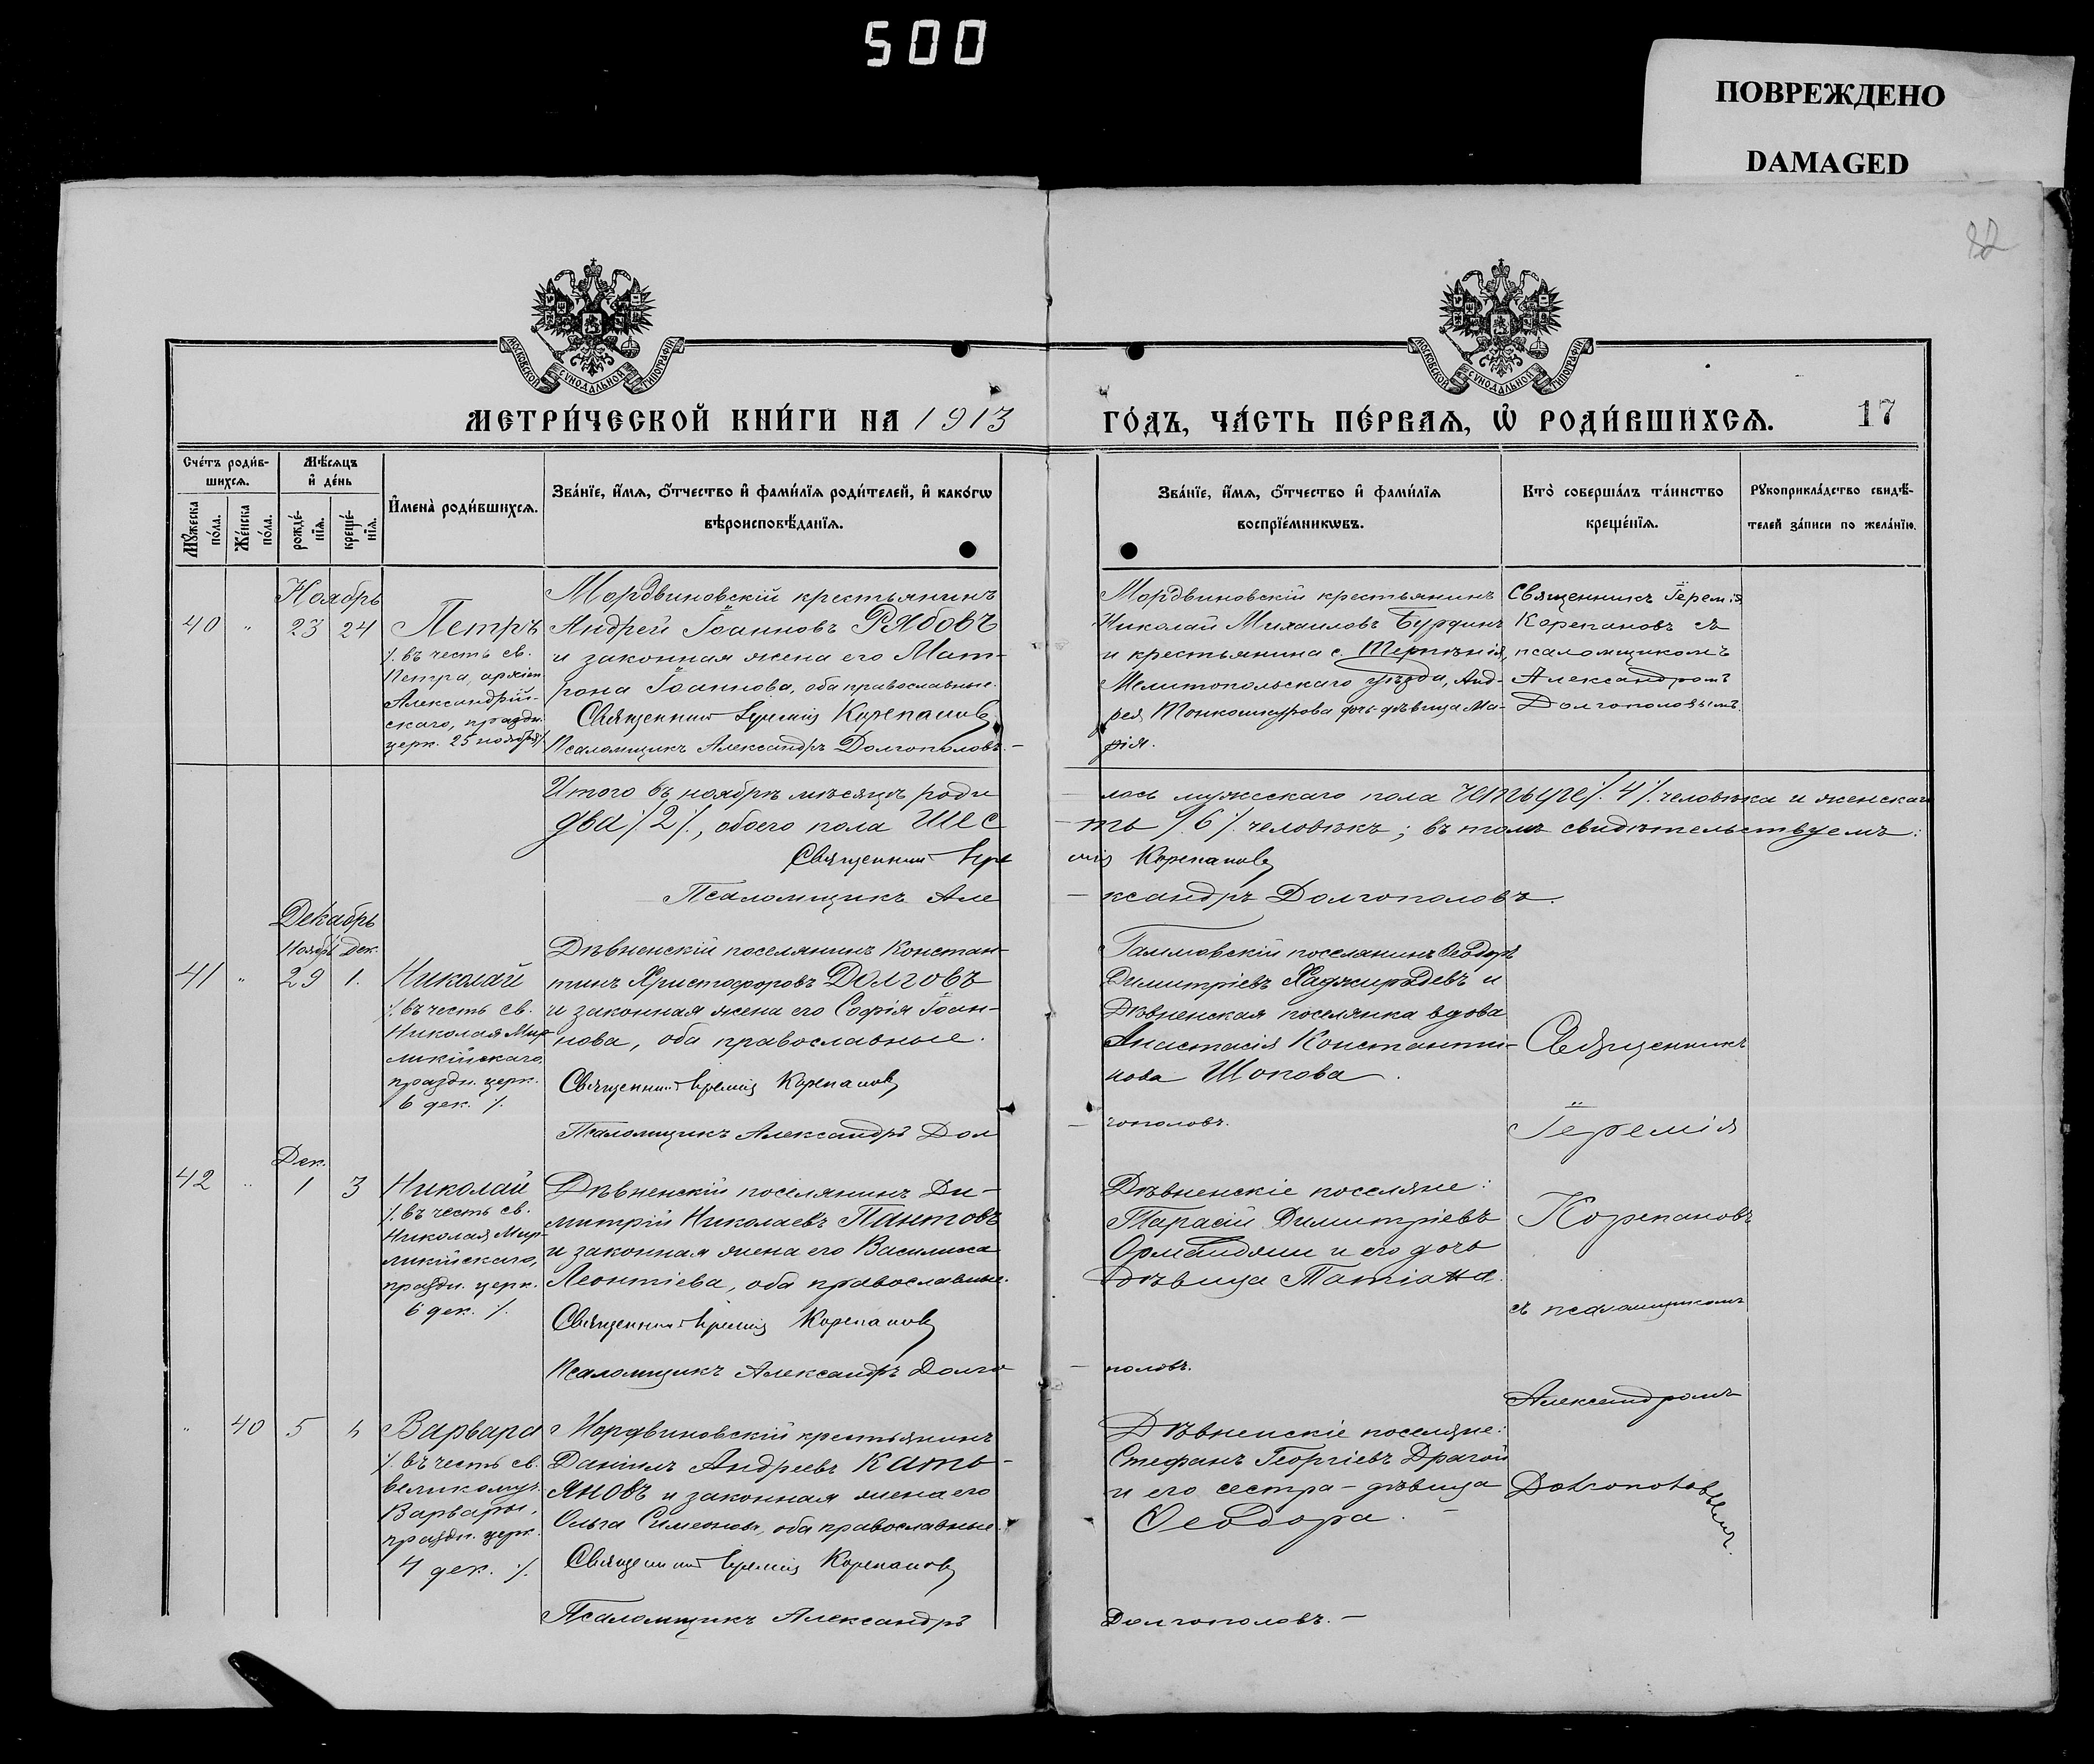 500
ПОВРЕЖДЕНО
DAMAGED
82
МОСКОВСКОЙ СѴНОДАЛЬНОЙ ТИПОГРАФІИ
МОСКОВСКОЙ СѴНОДАЛЬНОЙ ТИПОГРАФІИ
МЕТРИ́ЧЕСКОЙ КНИ́ГИ НА 1913
ГО́ДЪ, ЧА́СТЬ ПЕ́РВАѦ, Ѡ҆ РОДИ́ВШИХСѦ.
17
Сче́тъ роди́в-
шихсѧ.
Мѣ́сѧцъ
и҆ де́нь
Мꙋ́жеска
по́ла.
Же́нска
по́ла.
рожде́-
нїѧ.
креще́-
нїѧ.
И҆мена̀ роди́вшихсѧ.
Зва́нїе, и҆́мѧ, ѻ҆́тчество и҆ фами́лїѧ роди́телей, и҆ како́гѡ
вѣроисповѣ́данїѧ.
Зва́нїе, и҆́мѧ, ѻ҆́тчество и҆ фами́лїѧ
воспрїе́мникѡвъ.
Кто̀ соверша́лъ та́инство
креще́нїѧ.
Рꙋкоприкла́дство свидѣ́-
телей за́писи по жела́нїю.
Ноябрь
40 " 23 24
Петръ
/. въ честь св.
Петра, архіеп.
Александрій-
скаго, праздн.
церк. 25 ноября /.
Мордвиновскій крестьянинъ
Андрей Іоанновъ РЯбовъ
и законная жена его Мат-
рона Іоаннова, оба православные.
Священникъ Іеремія Корепановъ
Псаломщикъ Александръ Долгополовъ. —
Мордвиновскій крестьянинъ
Николай Михаиловъ Бурдинъ
и крестьянина с. Терпѣнія,
Мелитопольскаго уѣзда, Анд-
рея Тонкошкурова дочь-дѣвица Ма-
рія.
Священникъ Іеремія
Корепановъ съ
псаломщикомъ
Александромъ
Долгополовымъ.
Итого въ ноябрѣ мѣсяцѣ роди
лось мужескаго пола четыре /. 4 /. человѣка и женскаго
два /. 2 /., обоего пола шес
ть /. 6 /. человѣкъ; въ томъ свидѣтельствуемъ:
Священникъ Іере
мія Корепановъ
Псаломщикъ Але
ксандръ Долгополовъ.
Декабрь
Ноябрь Дек.
41 " 29 1.
Николай
/. въ честь св.
Николая Мир-
ликійскаго,
праздн. церк.
6 дек. /.
Дѣвненскій поселянинъ Констан-
тинъ Христофоровъ Долговъ
и законная жена его Софія Іоан-
нова, оба православные.
Священникъ Іеремія Корепановъ
Псаломщикъ Александръ Дол
Гаммовскій поселянинъ Ѳеодоръ
Димитріевъ Хаджирадевъ и
Дѣвненская поселянка вдова
Анастасія Константи-
нова Шопова.
гополовъ.
Священникъ
Іеремія
Корепановъ
съ псаломщикомъ
Александромъ
Долгополовымъ.
Дек.
42 " 1 3
Николай
/. въ честь св.
Николая Мир-
ликійскаго,
праздн. церк.
6 дек. /.
Дѣвненскій поселянинъ Ди-
митрій Николаевъ Пантовъ
и законная жена его Василиса
Леонтіева, оба православные.
Священникъ Іеремія Корепановъ
Псаломщикъ Александръ Долго
Дѣвненскіе поселяне:
Тарасій Димитріевъ
и его дочь
дѣвица Татіана.
половъ.
" 40 5
Варвара
/. въ честь св.
великомуч.
Варвары,
праздн. церк.
4 дек. /.
Мордвиновскій крестьянинъ
Даніилъ Андреевъ Кать-
яновъ и законная жена его
Ольга Симеонова, оба православные.
Священникъ Іеремія Корепановъ
Псаломщикъ Александръ
Дѣвненскіе поселяне:
Стефанъ Георгіевъ Драгой
и его сестра-дѣвица
Ѳеодора. —
Долгополовъ. —